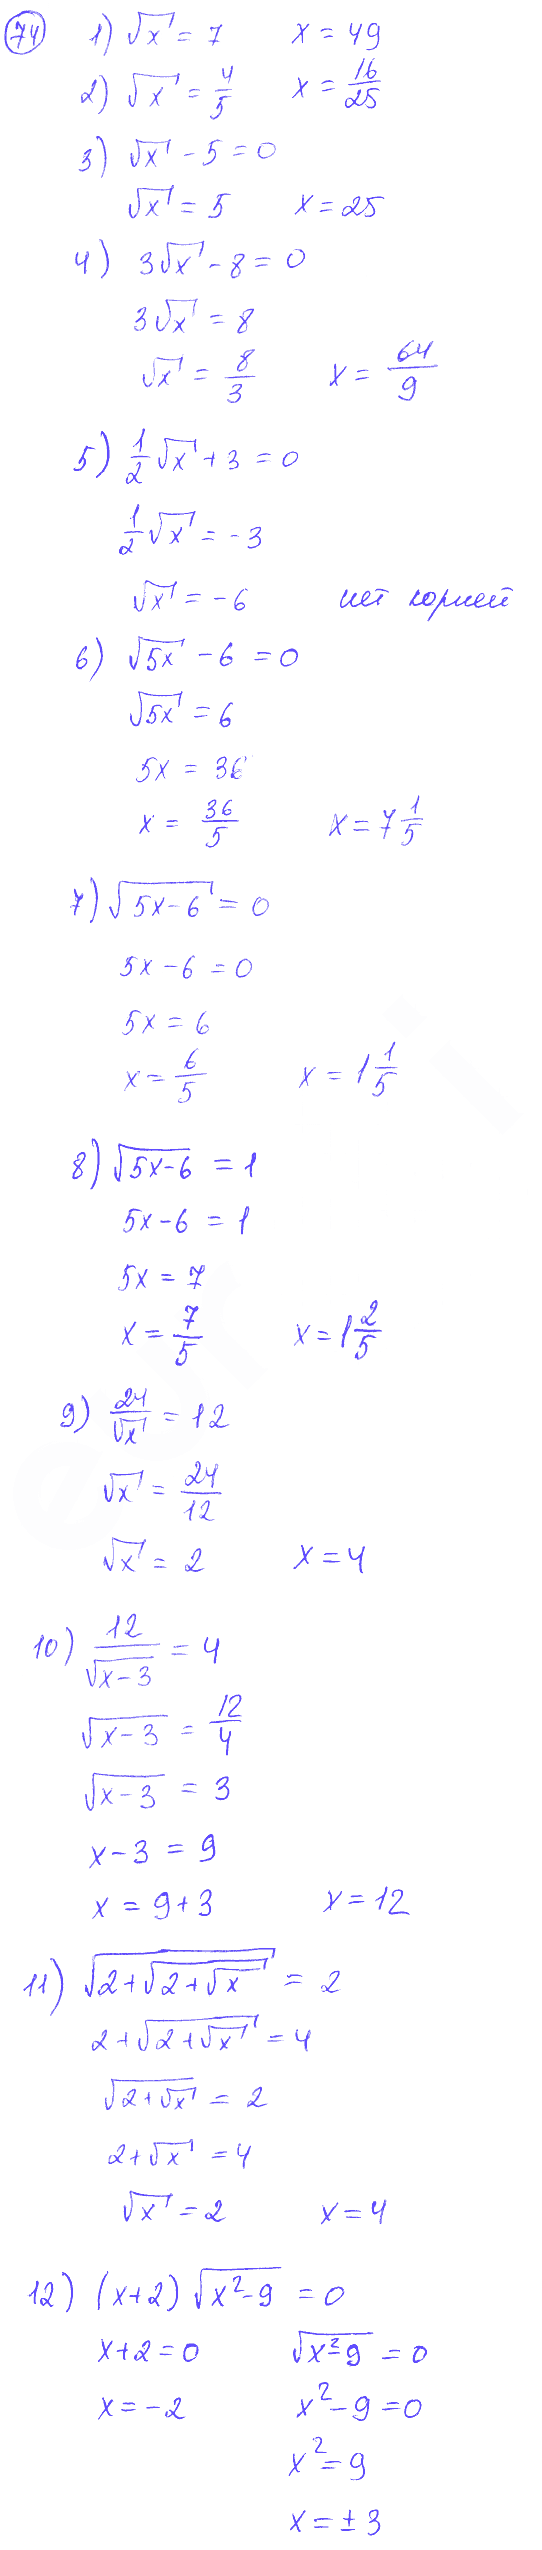 74 1) √x = 7 x = 49
2) √x = 4/5 x = 16/25
3) √x - 5 = 0
√x = 5 x = 25
4) 3√x - 8 = 0
3√x = 8
√x = 8/3 x = 64/9
5) 1/2 √x + 3 = 0
1/2 √x = -3
√x = -6 нет корней
6) √(5x) - 6 = 0
√(5x) = 6
5x = 36
x = 36/5 x = 7 1/5
7) √(5x-6) = 0
5x - 6 = 0
5x = 6
x = 6/5 x = 1 1/5
8) √(5x-6) = 1
5x - 6 = 1
5x = 7
x = 7/5 x = 1 2/5
9) 24/√x = 12
√x = 24/12
√x = 2 x = 4
10) 12/√(x-3) = 4
√(x-3) = 12/4
√(x-3) = 3
x - 3 = 9
x = 9 + 3 x = 12
11) √(2+√(2+√x)) = 2
2+√(2+√x) = 4
√(2+√x) = 2
2+√x = 4
√x = 2 x = 4
12) (x+2) √(x²-9) = 0
x+2 = 0 √(x²-9) = 0
x = -2 x² - 9 = 0
x² = 9
x = ± 3